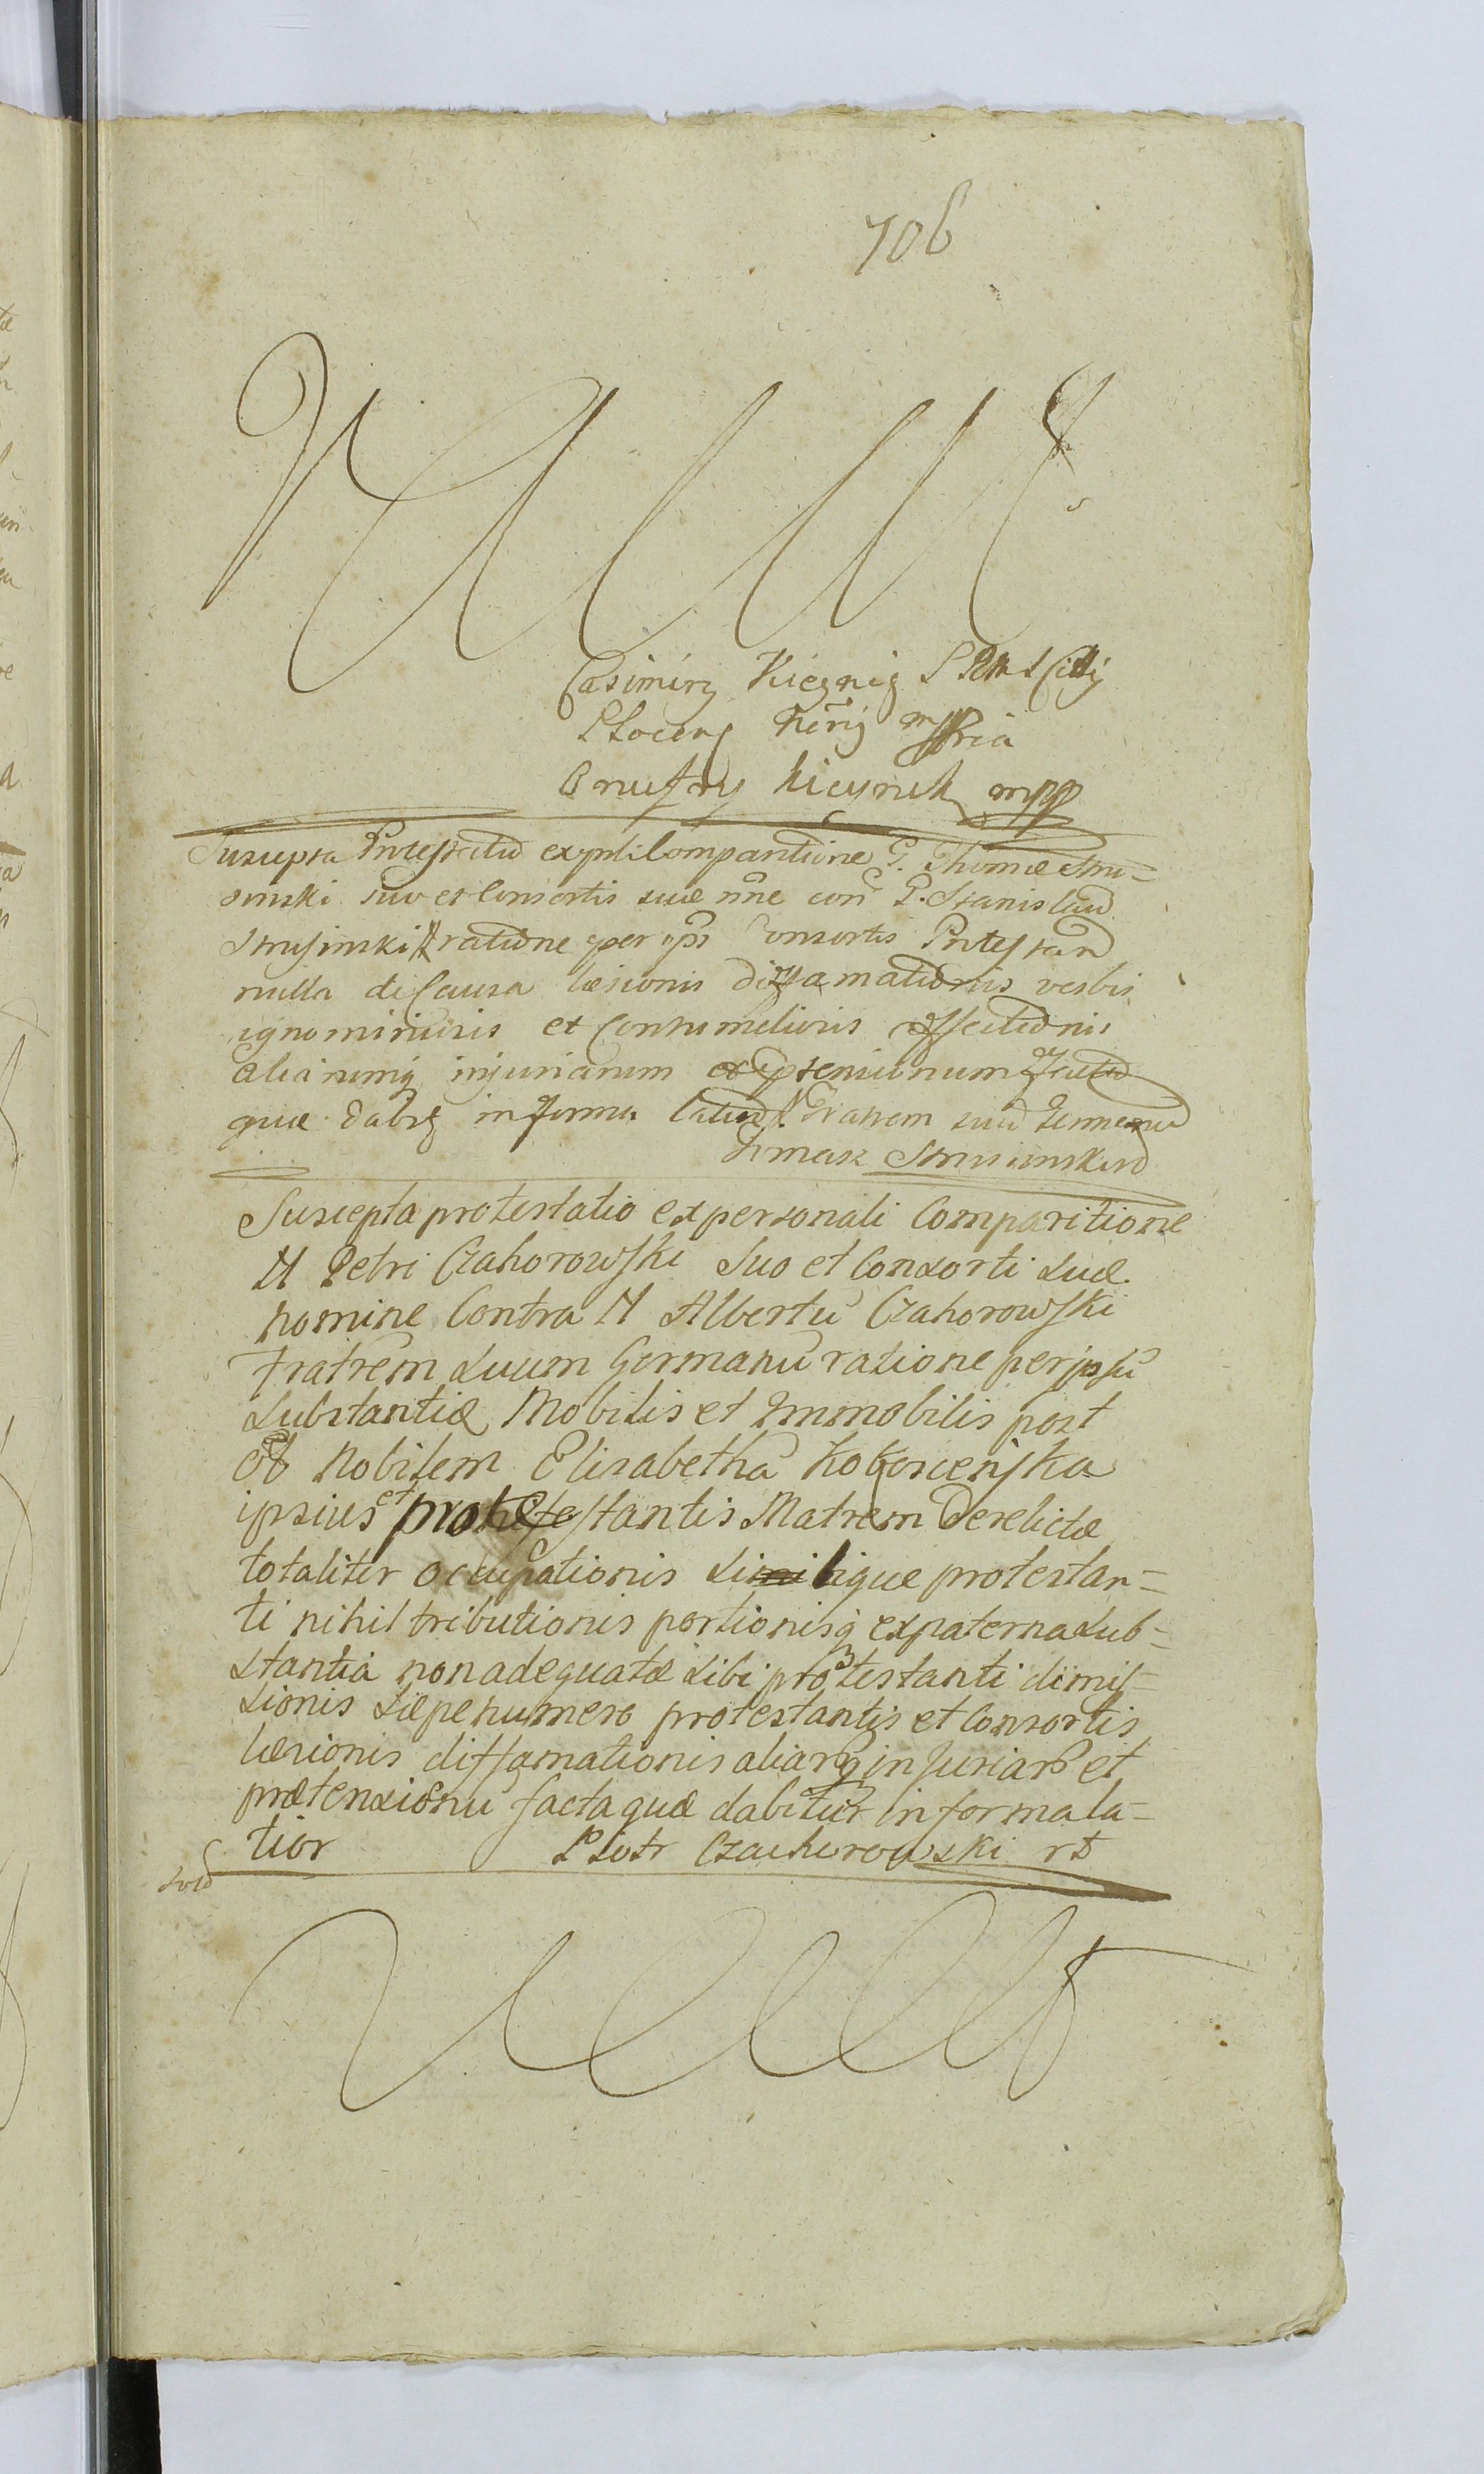 706
Casimirg
mppria
Onufry mpp
Suscepta Protestatio ex psli Comparitione G. Thomæ Stru=
sinski suo et Consortis suæ nne con G. Stanislaū
Strusinski ratione per ips Consortis Protestan
nulla de Causa læsionis diffamationis verbis
ignominiosis et Contumeliosis affectionis
aliarumq injuriarum prætensionum facta
quæ dabiṫ in forma latiori Fratrem suū Germanū
Tomasz Strusinski
Suscepta protestatio ex personali Comparitione
N Petri Czahorowski Suo et Consorti suæ
nomine Contra N Albertū Czahorowski
Fratrem suum Germanū ratione per ipsū
substantiæ Mobilis et Immobilis post
ob Nobilem Elisabethā
ipsius et protestantis Matrem derelictæ
totaliter occupationis sibique protestan=
ti nihil tributionis portionisq ex paterna sub=
stantia non adequatæ sibi protestanti dimis=
sionis sæpenumero protestantis et Consortis
læsionis diffamationis aliarq injuriar et
prætensionū facta quæ dabitur in forma la=
tior Piotr Czachorowski